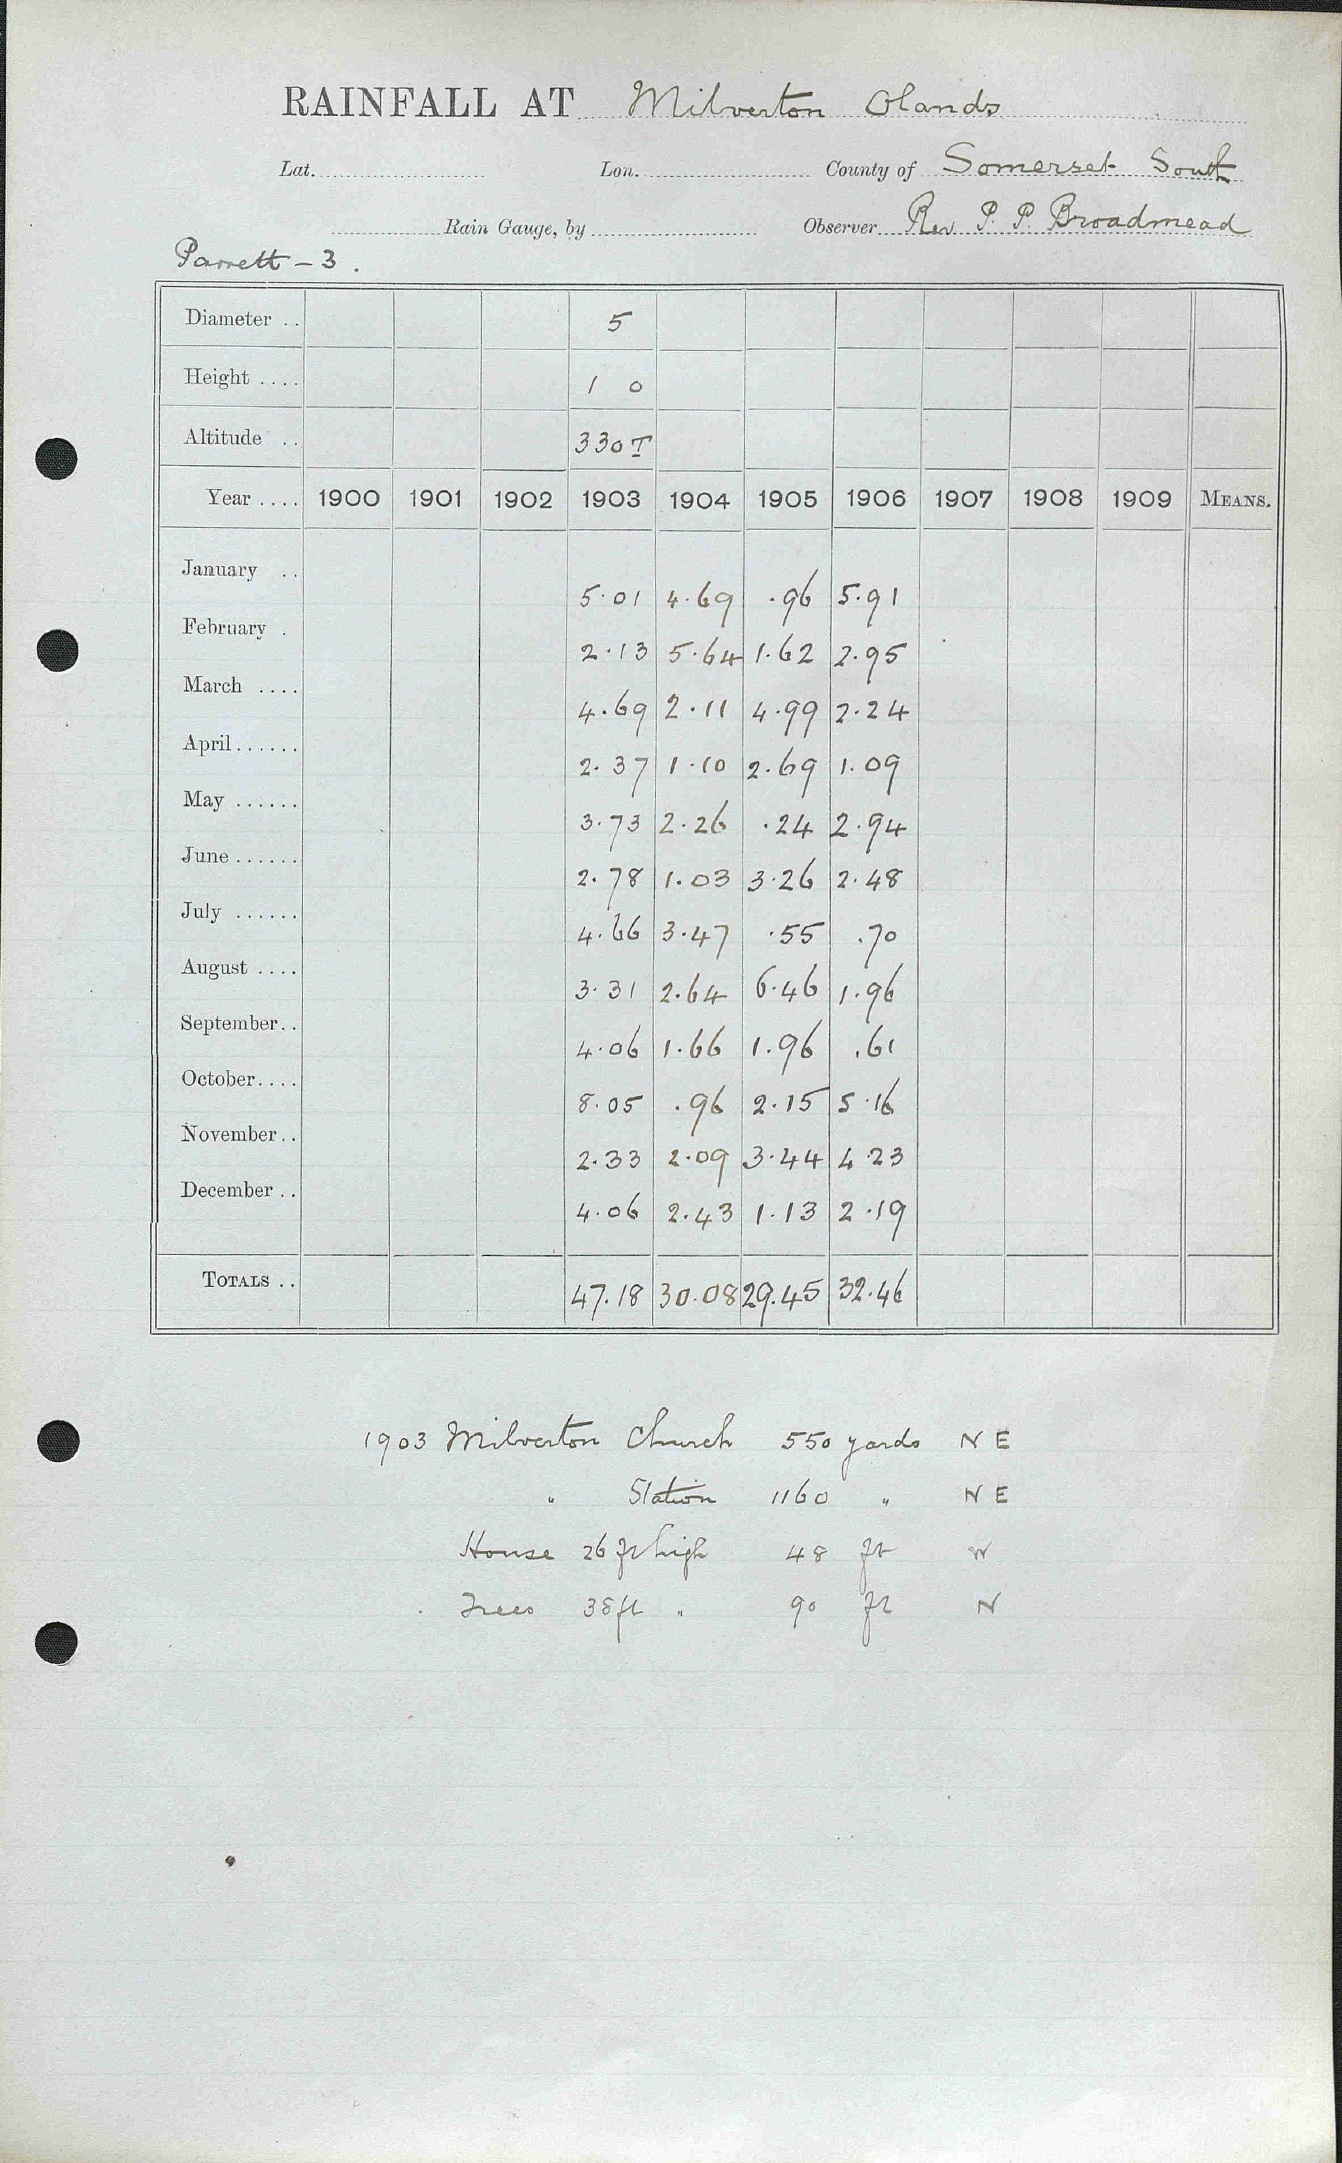 RAINFALL AT Milverton Olands
Lat. Lon. County of Somerset South
Rain Gauge, by Observer Rev P. P. Broadmead
Parrett - 3.
Diameter .. 5
Height .... 1 0
Altitude .. 330 T
Year .... 1900 1901 1902 1903 1904 1905 1906 1907 1908 1909 MEANS.
January .. 5.01 4.69 .96 5.91
February . 2.13 5.64 1.62 2.95
March .... 4.69 2.11 4.99 2.24
April ...... 2.37 1.10 2.69 1.09
May ...... 3.73 2.26 .24 2.94
June ...... 2.78 1.03 3.26 2.48
July ...... 4.66 3.47 .55 .70
August .... 3.31 2.64 6.46 1.96
September .. 4.06 1.66 1.96 .61
October .... 8.05 .96 2.15 5.16
November .. 2.33 2.09 3.44 4.23
December .. 4.06 2.43 1.13 2.19
TOTALS .. 47.18 30.08 29.45 32.46
1903 Milverton Church 550 yards N E
" Station 1160 " N E
House 26 ft high 48 ft W
Trees 38 ft " 90 ft N